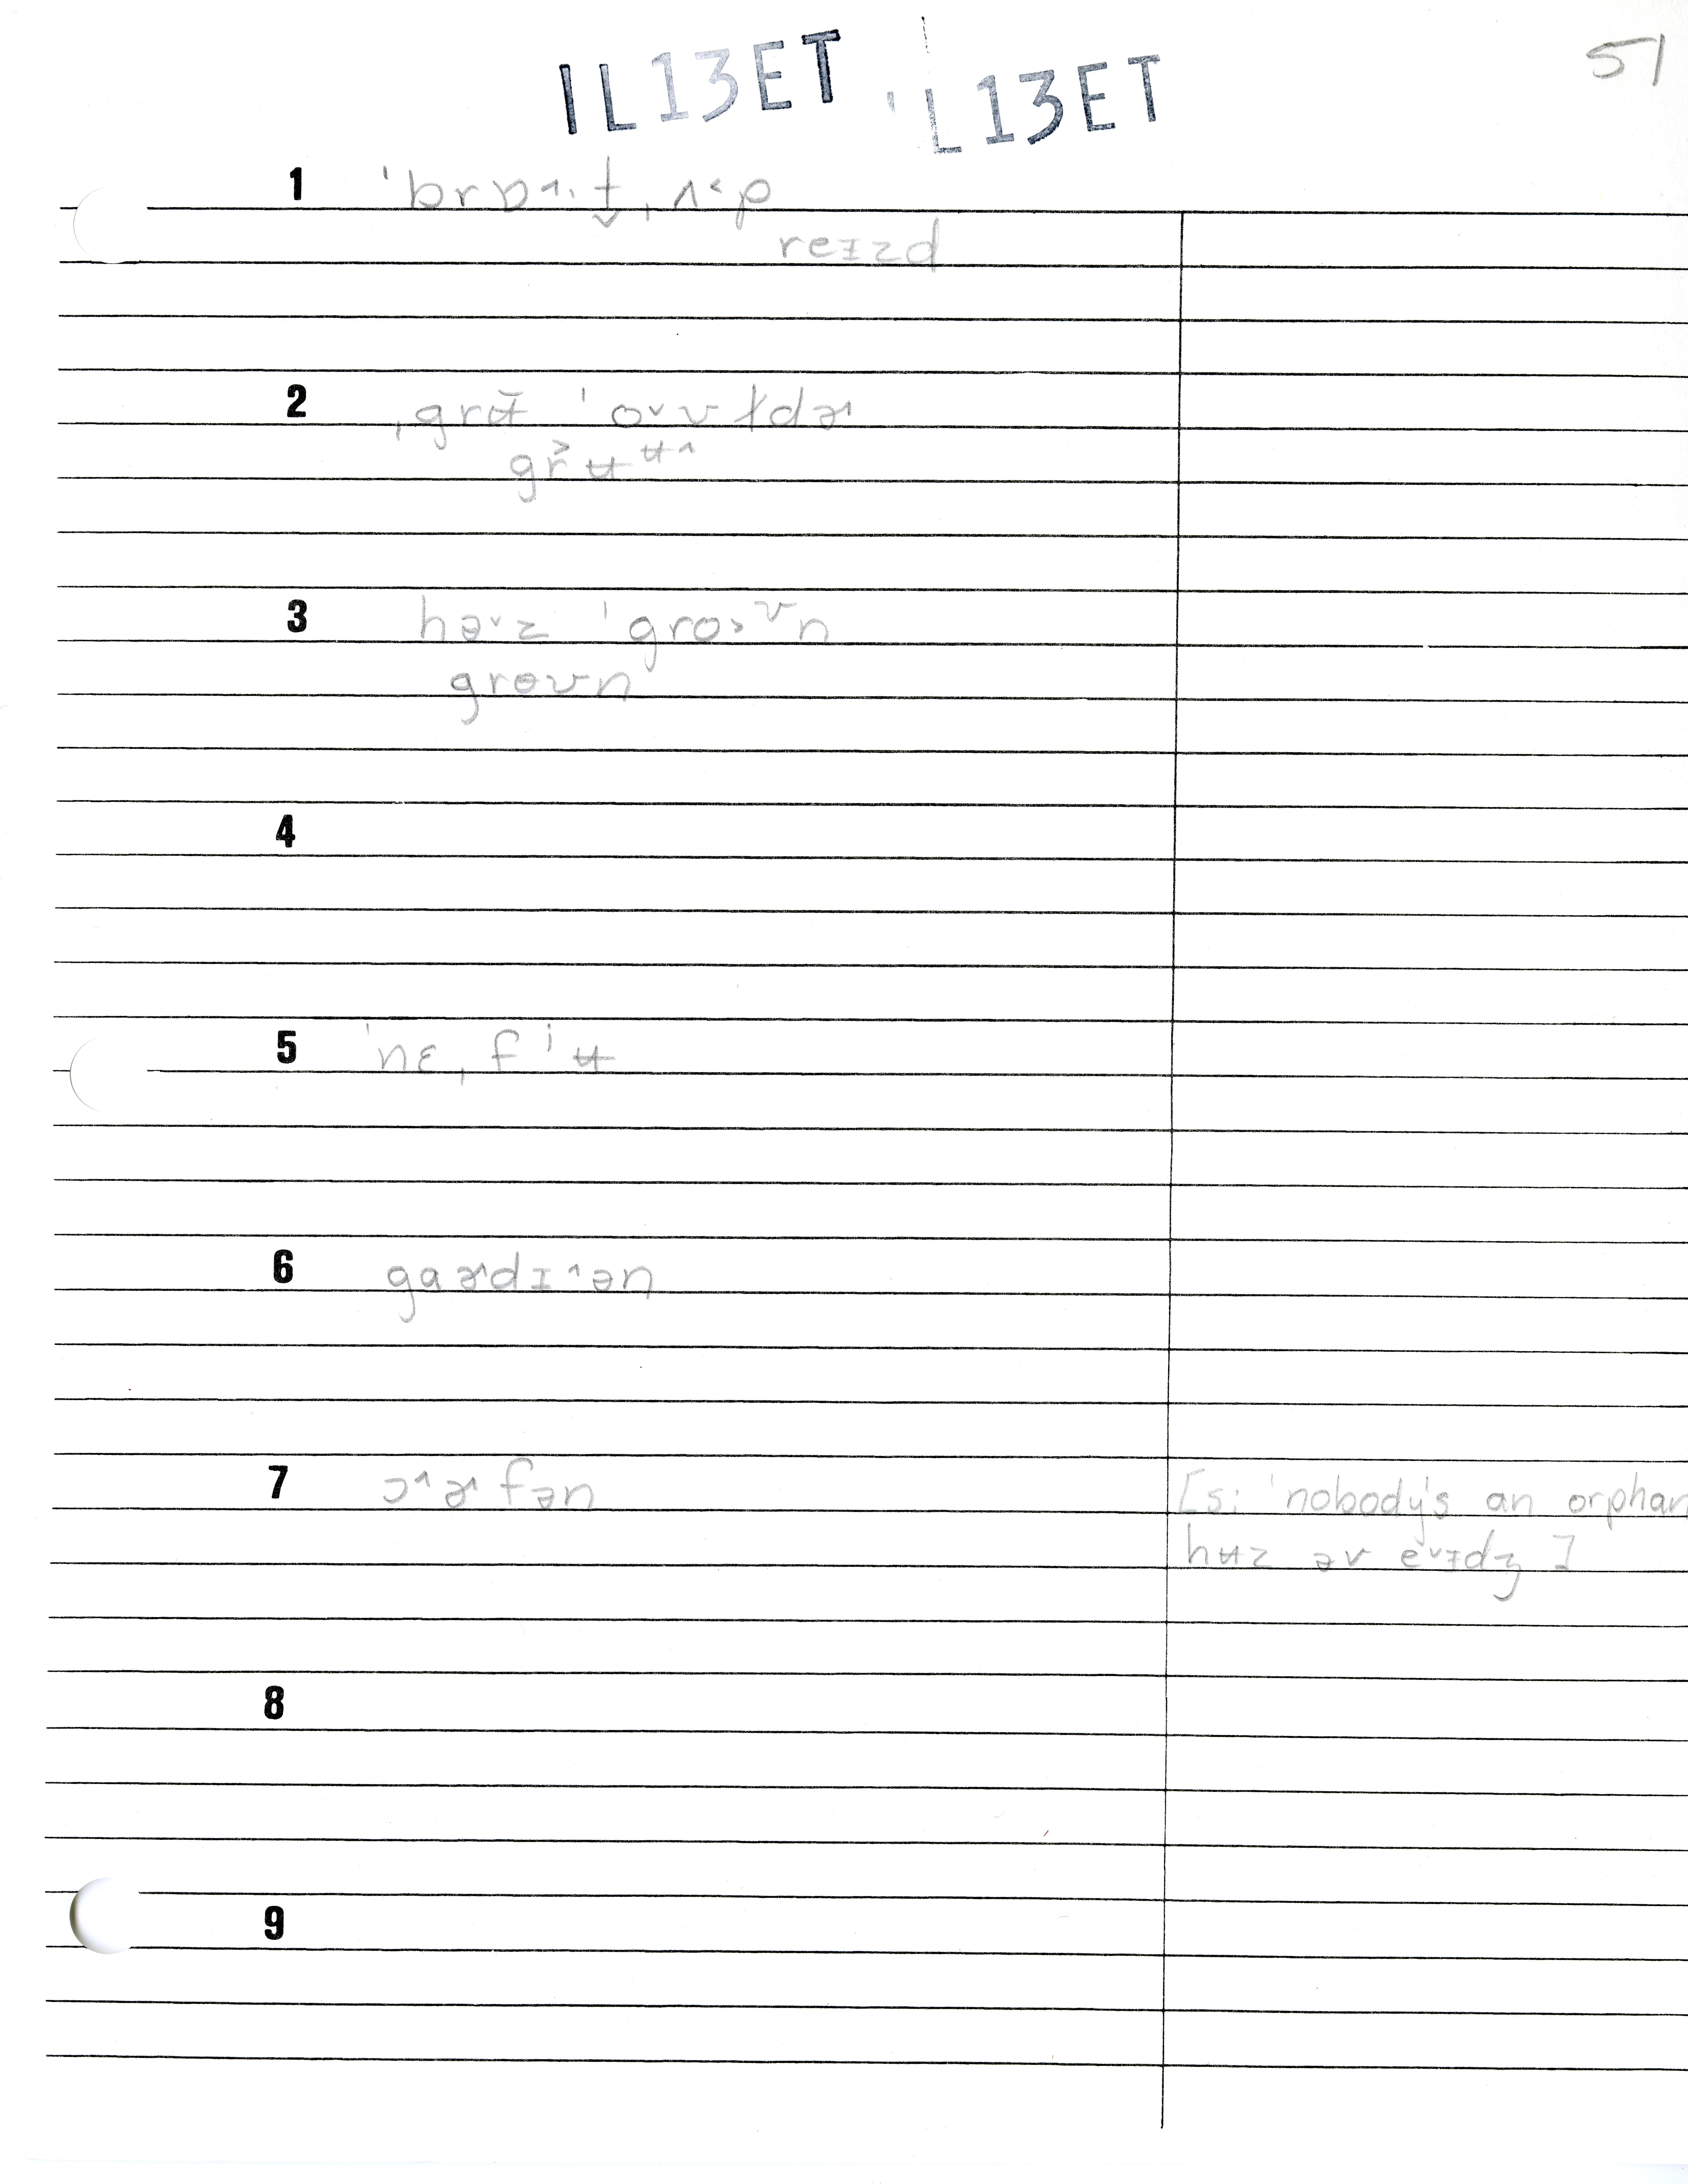 IL13ET 'L13ET
51
1 ˈbrɒ˄ˑt̬ˌʌ˂p
reɪzd
2 ˌgrʉ̆ ˈo˅ʊɫdɚ
gř̌ʉʉ˄
3 hə˅z ˈgro˃ʊn
grɵʊn
4
5 ˈnɛˌfʲʉ
6 gaɚdɪ˄ən
7 ɔ˄ɚfən [s: ˈnobody's an orphan
hʉz əv e˅ɪdʒ]
8
9